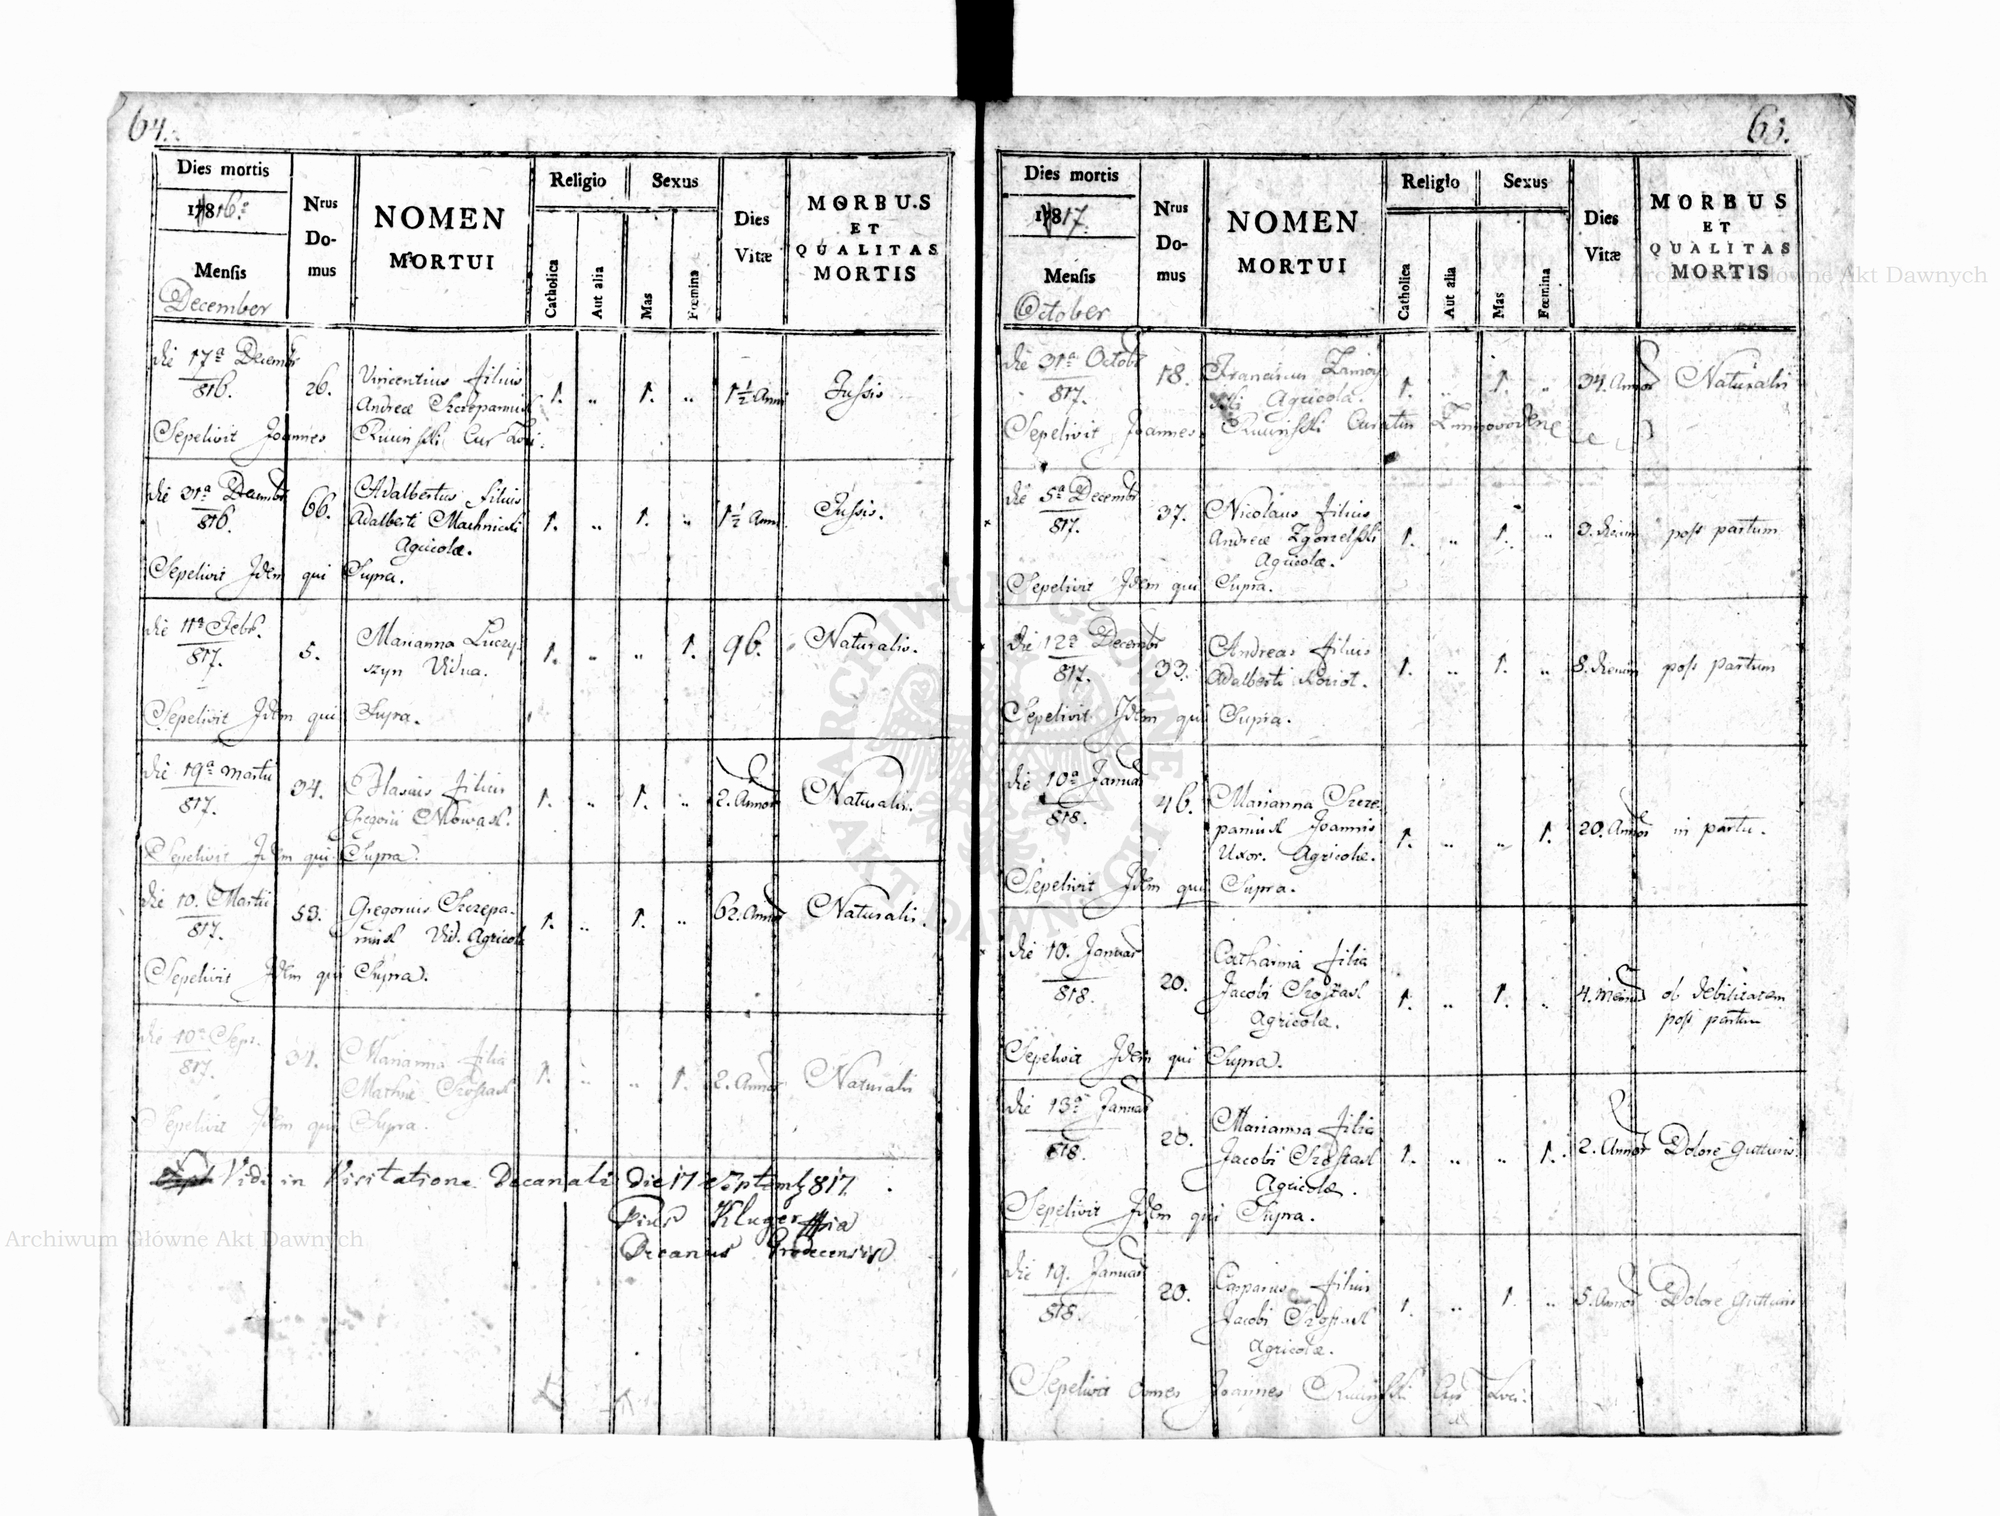 64.
Dies mortis
Nrus Domus
NOMEN MORTUI
Religio
Sexus
Dies Vitæ
MORBUS ET QUALITAS MORTIS
1816
Mensis
December
Catholica
Aut alia
Mas
Fœmina
die 17a Decembr 816. 26. Vincentius filius 1. „ 1. „ 1½ Anni Tussis
Andreæ Szczepaniak
Sepelivit Joannes Cur Loci.
die 31a Decembr 816. 66. Adalbertus filius 1. „ 1. „ 1½ Anni Tussis.
Adalberti Machnicki
Agricolæ.
Sepelivit Idem qui Supra.
die 11a Febr. 817. 5. Marianna Luczy- 1. „ „ 1. 96. Naturalis.
szyn Vidua.
Sepelivit Idem qui Supra.
die 19a Martii 817. 34. Blasius filius 1. „ 1. „ 2. Annor Naturalis.
Gregorii Nowak.
Sepelivit Idem qui Supra.
die 10. Martii 817. 53. Gregorius Szczepa- 1. „ 1. „ 62. Annor Naturalis.
niak Vid. Agricola
Sepelivit Idem qui Supra.
die 10a Sept. 817. 31. Marianna filia 1. „ „ 1. 2. Annor Naturalis
Mathiæ Szostak
Sepelivit Idem qui Supra.
Vidi in Visitatione Decanali Die 17 Septemb 817.
Pius Kluger mpia
Decanus Grodecensis
63.
Dies mortis
Nrus Domus
NOMEN MORTUI
Religio
Sexus
Dies Vitæ
MORBUS ET QUALITAS MORTIS
1817.
Mensis
October
Catholica
Aut alia
Mas
Fœmina
die 31a Octobr 817. 18. Franciscus Zamoy 1. „ 1. „ 34. Annor Naturalis
ski Agricola.
Sepelivit Joannes Curatus
die 5a Decembr 817. 37. Nicolaus filius 1. „ 1. „ 3. dierum post partum
Andreæ Zgorzelski
Agricolæ.
Sepelivit Idem qui Supra.
die 12a Decembr 817. 33. Andreas filius 1. „ 1. „ 8. dierum post partum
Adalberti
Sepelivit Idem qui Supra.
die 10a Januar 818. 46. Marianna Szcze- 1. „ „ 1. 20. Annor in partu.
paniak Joannis
Uxor. Agricolæ.
Sepelivit Idem qui Supra.
die 10. Januar 818. 20. Catharina filia 1. „ 1. „ 4. Mensis ob debilitatem
Jacobi Szostak post partum
Agricolæ.
Sepelivit Idem qui Supra.
die 13a Januar 818. 20. Marianna filia 1. „ „ 1. 2. Annor Dolore gutturis.
Jacobi Szostak
Agricolæ.
Sepelivit Idem qui Supra.
die 19. Januar 818. 20. Casparus filius 1. „ 1. „ 5. Annor Dolore gutturis
Jacobi Szostak
Agricolæ.
Sepelivit omnes Joannes Cur Loci.
Archiwum Główne Akt Dawnych
Archiwum Główne Akt Dawnych
ARCHIWUM GŁÓWNE
AKT DAWNYCH